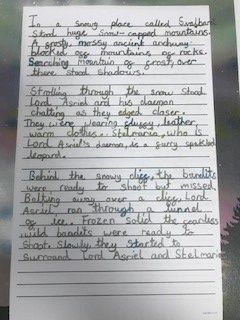 In a snowy place called Svalbard
Stood huge snow-capped mountains.
A frosty, mossy ancient archway
blocked off mountains of rocks.
Searching mountain of frost, over
there stood shadows.
Strolling through the snow stood
Lord Asriel and his daemon
chatting as they edged closer.
They were wearing fluffy leather,
warm clothes. Stelmaria, who is
Lord Asriel's daemon, is a furry speckled
leopard.
Behind the snowy cliff, the bandits
were ready to shoot but missed.
Bolting away over a cliff, Lord
Asriel, ran through a tunnel
of ice. Frozen solid the fearless
wild bandits were ready to
Shoot. Slowly, they started to
Surround Lord Asriel and Stelmaria